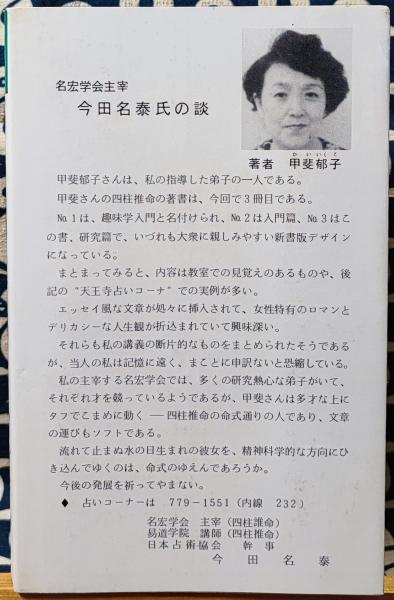 名宏学会主宰
今田名泰氏の談
か い い く こ
著者 甲斐郁子
甲斐郁子さんは、私の指導した弟子の一人である。
甲斐さんの四柱推命の著書は、今回で3冊目である。
№1は、趣味学入門と名付けられ、№2は入門篇、№3はこ
の書、研究篇で、いづれも大衆に親しみやすい新書版デザイン
になっている。
まとまってみると、内容は教室での見覚えのあるものや、後
記の“天王寺占いコーナ”での実例が多い。
エッセイ風な文章が処々に挿入されて、女性特有のロマンと
デリカシーな人生観が折込まれていて興味深い。
それらも私の講義の断片的なものをまとめられたそうである
が、当人の私は記憶に遠く、まことに申訳ないと恐縮している。
私の主宰する名宏学会では、多くの研究熱心な弟子がいて、
それぞれ才を競っているようであるが、甲斐さんは多才な上に
タフでこまめに動く ── 四柱推命の命式通りの人であり、文章
の運びもソフトである。
流れて止まぬ水の日生まれの彼女を、精神科学的な方向にひ
き込んでゆくのは、命式のゆえんであろうか。
今後の発展を祈ってやまない。
♦ 占いコーナーは 779－1551（内線 232）
名宏学会 主宰（四柱推命）
易道学院 講師（四柱推命）
日本占術協会 幹事
今田名泰